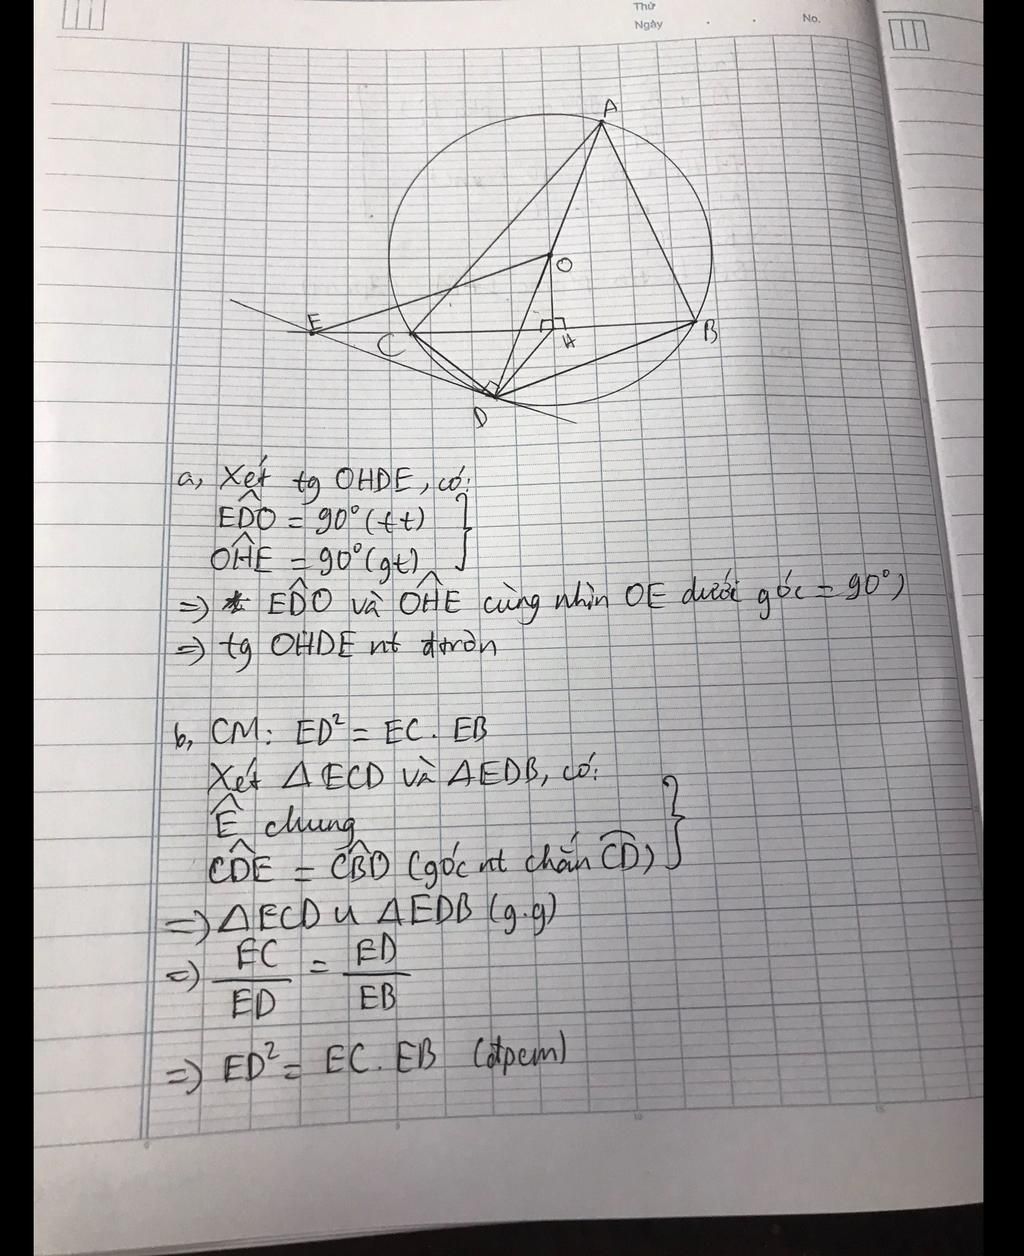 Thứ
Ngày . . No.
A
O
E
C
H
B
D
a, Xét tg OHDE, có:
EDÔ = 90° (tt)
OHÊ = 90° (gt)
=> EDÔ và OHÊ cùng nhìn OE dưới góc = 90°)
=> tg OHDE nt đtròn
b, CM: ED² = EC. EB
Xét Δ ECD và ΔEDB, có:
Ê chung
CDE = CBD (góc nt chắn CD)
=> ΔECD ∽ ΔEDB (g.g)
=> EC/ED = ED/EB
=> ED² = EC. EB (đpcm)